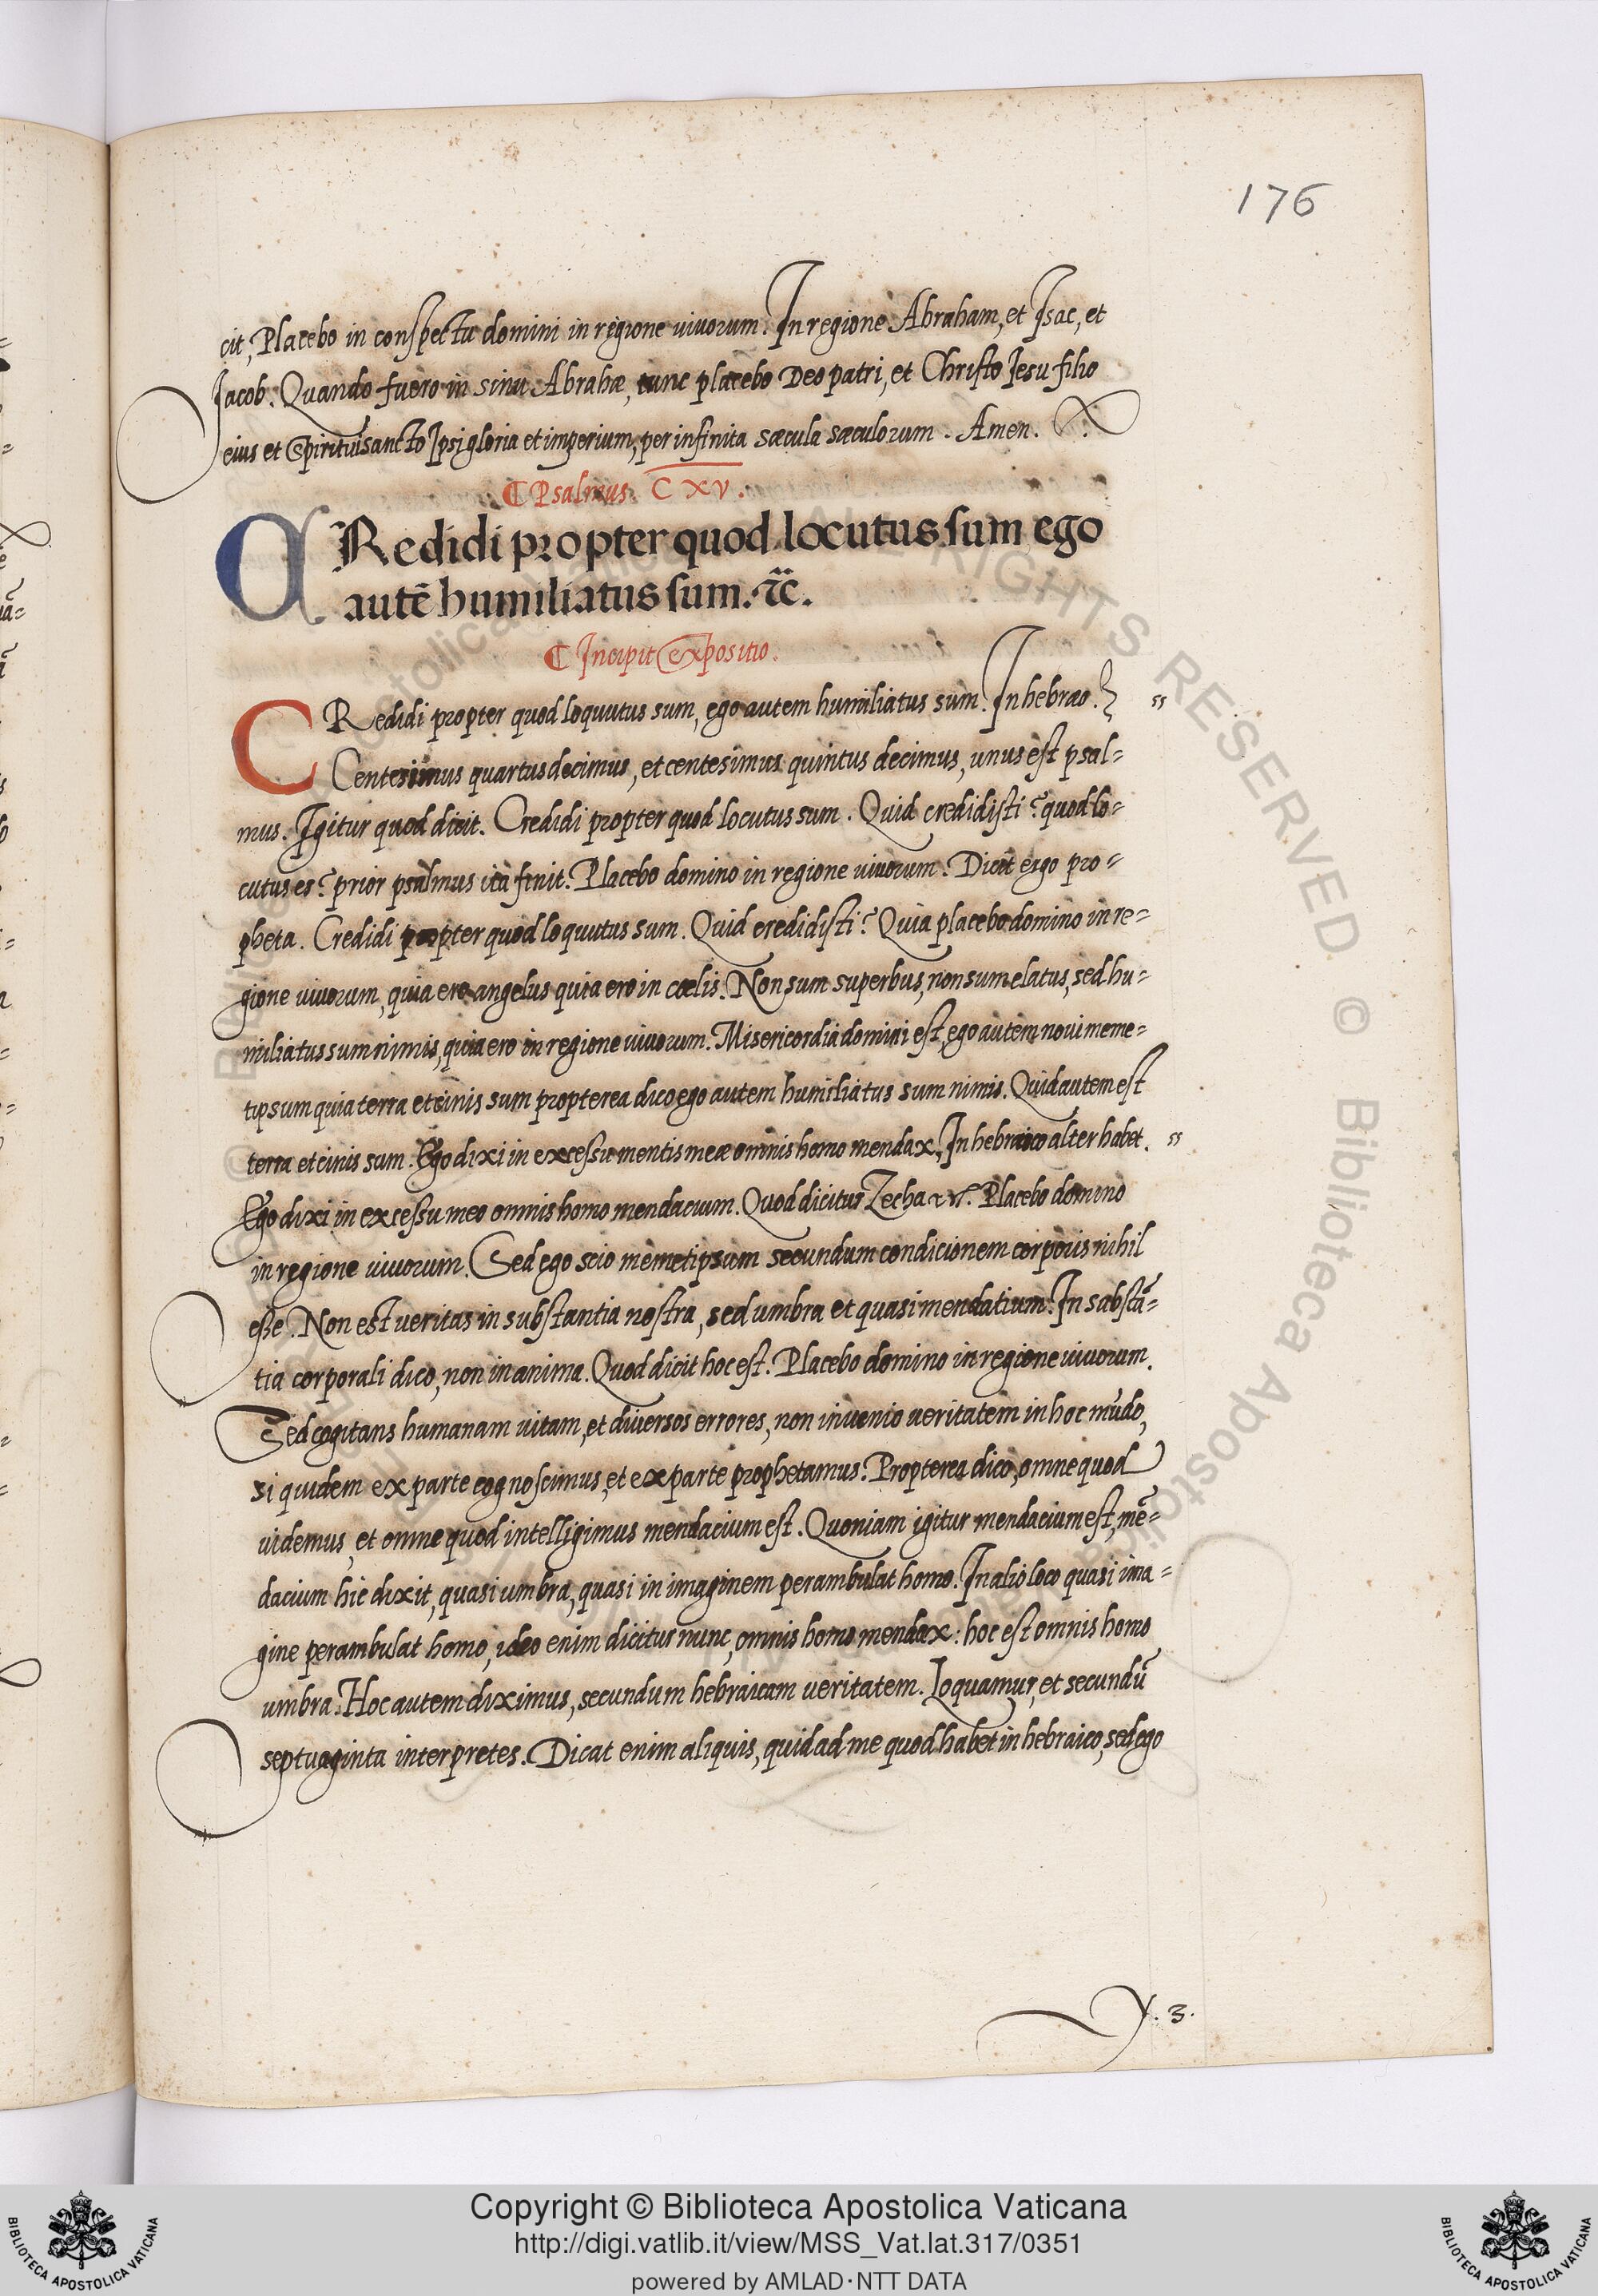 176
cit, Placebo in conspectu domini in regione uiuorum. In regione Abraham, et Isac, et
Jacob. Quando fuero in sinu Abrahæ, tunc placebo Deo patri, et Christo Iesu filio
eius et Spiritui sancto Ipsi gloria et imperium, per infinita sæcula sæculorum. Amen.
¶ Psalmus. CXV.
CRedidi propter quod locutus sum ego
autē humiliatus sum. ⁊c̃.
¶ Incipit expositio.
CRedidi propter quod loquutus sum, ego autem humiliatus sum. In hebrao.
Centesimus quartusdecimus, et centesimus quintus decimus, unus est psal=
mus. Igitur quod dicit. Credidi propter quod locutus sum. Quid credidisti? quod lo=
cutus es? prior psalmus ita finit. Placebo domino in regione uiuorum. Dicit ergo pro=
pheta. Credidi propter quod loquutus sum. Quid credidisti? Quia placebo domino in re=
gione uiuorum, quia ero angelus quia ero in cœlis. Non sum superbus, non sum elatus, sed hu=
miliatus sum nimis, quia ero in regione uiuorum. Misericordia domini est, ego autem noui meme=
tipsum quia terra et cinis sum propterea dico ego autem humiliatus sum nimis. Quid autem est
terra et cinis sum. Ego dixi in excessu mentis meæ omnis homo mendax, In hebraico alter habet.
Ego dixi in excessu meo omnis homo mendacium. Quod dicitur Zecha Placebo domino
in regione uiuorum. Sed ego scio memetipsum secundum condicionem corporis nihil
esse. Non est ueritas in substantia nostra, sed umbra et quasi mendatium. In sabstā=
tia corporali dico, non in anima. Quod dicit hoc est. Placebo domino in regione uiuorum.
Sed cogitans humanam uitam, et diuersos errores, non inuenio ueritatem in hoc mūdo,
si quidem ex parte cognoscimus, et ex parte prophetamus. Propterea dico, omne quod
uidemus, et omne quod intelligimus mendacium est. Quoniam igitur mendacium est, mē=
dacium hic dixit, quasi umbra, quasi in imaginem perambulat homo. In alio loco quasi ima=
gine perambulat homo, ideo enim dicitur nunc, omnis homo mendax: hoc est omnis homo
umbra. Hoc autem diximus, secundum hebraicam ueritatem. Loquamur, et secundū
septuaginta interpretes. Dicat enim aliquis, quid ad me quod habet in hebraico, sed ego
Y. 3.
Copyright © Biblioteca Apostolica Vaticana
http://digi.vatlib.it/view/MSS_Vat.lat.317/0351
powered by AMLAD·NTT DATA
BIBLIOTECA APOSTOLICA VATICANA
BIBLIOTECA APOSTOLICA VATICANA